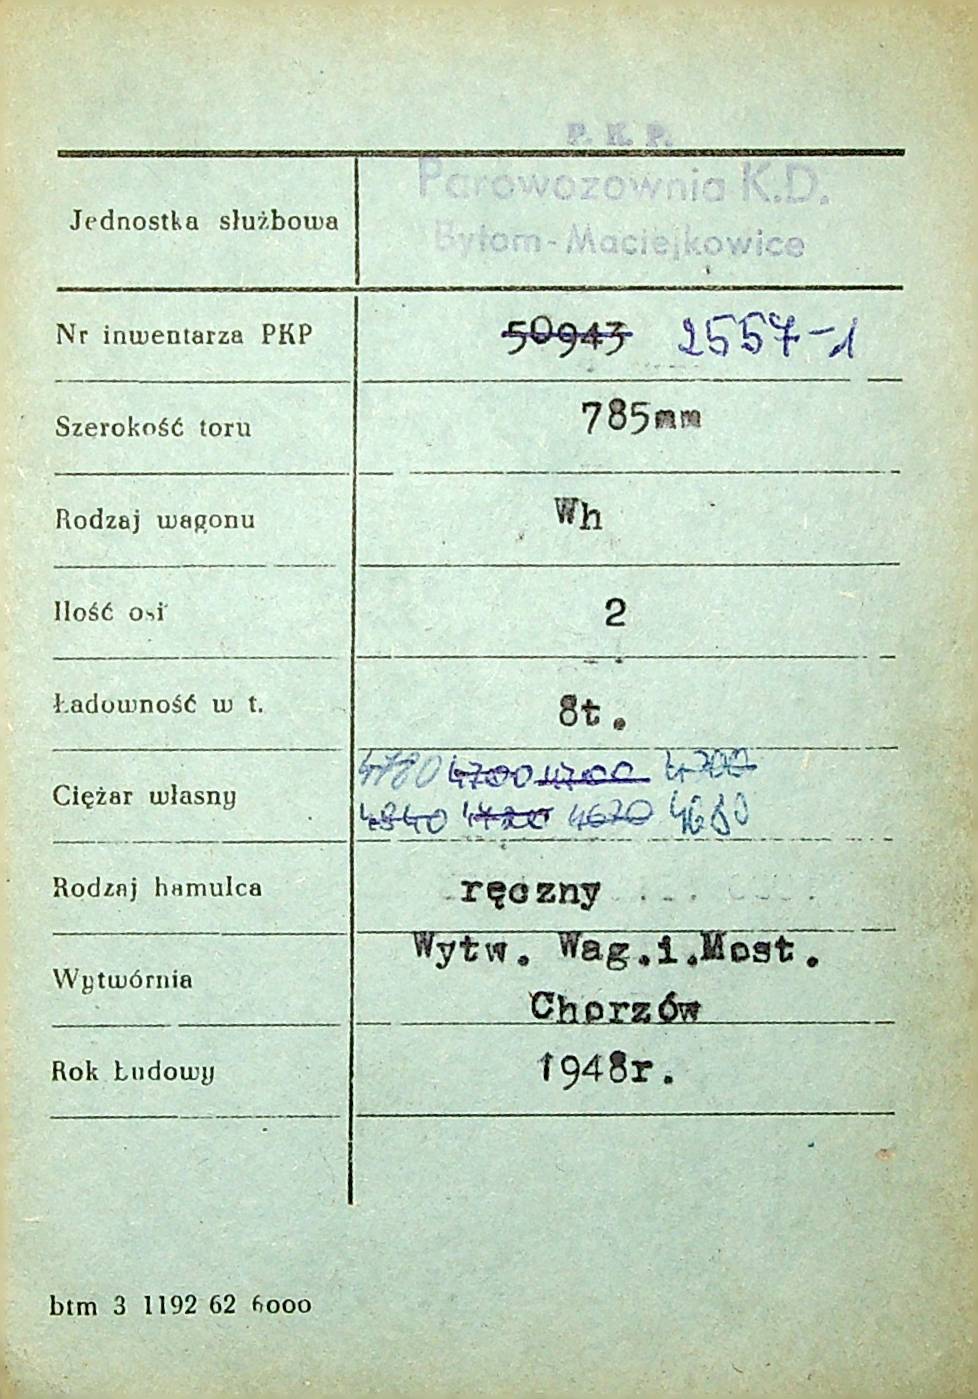 P. K. P.
Parowozownia K.D.
Jednostka służbowa
Bytom-Maciejkowice
Nr inwentarza PKP 50943 2557-1
Szerokość toru 785mm
Rodzaj wagonu Wh
Ilość osi 2
Ładowność w t. 8t.
4780 4700 4700 4700
Ciężar własny
4840 4720 4670 4680
Rodzaj hamulca ręczny
Wytw. Wag.i.Most.
Wytwórnia
Chorzów
Rok budowy 1948r.
btm 3 1192 62 6000